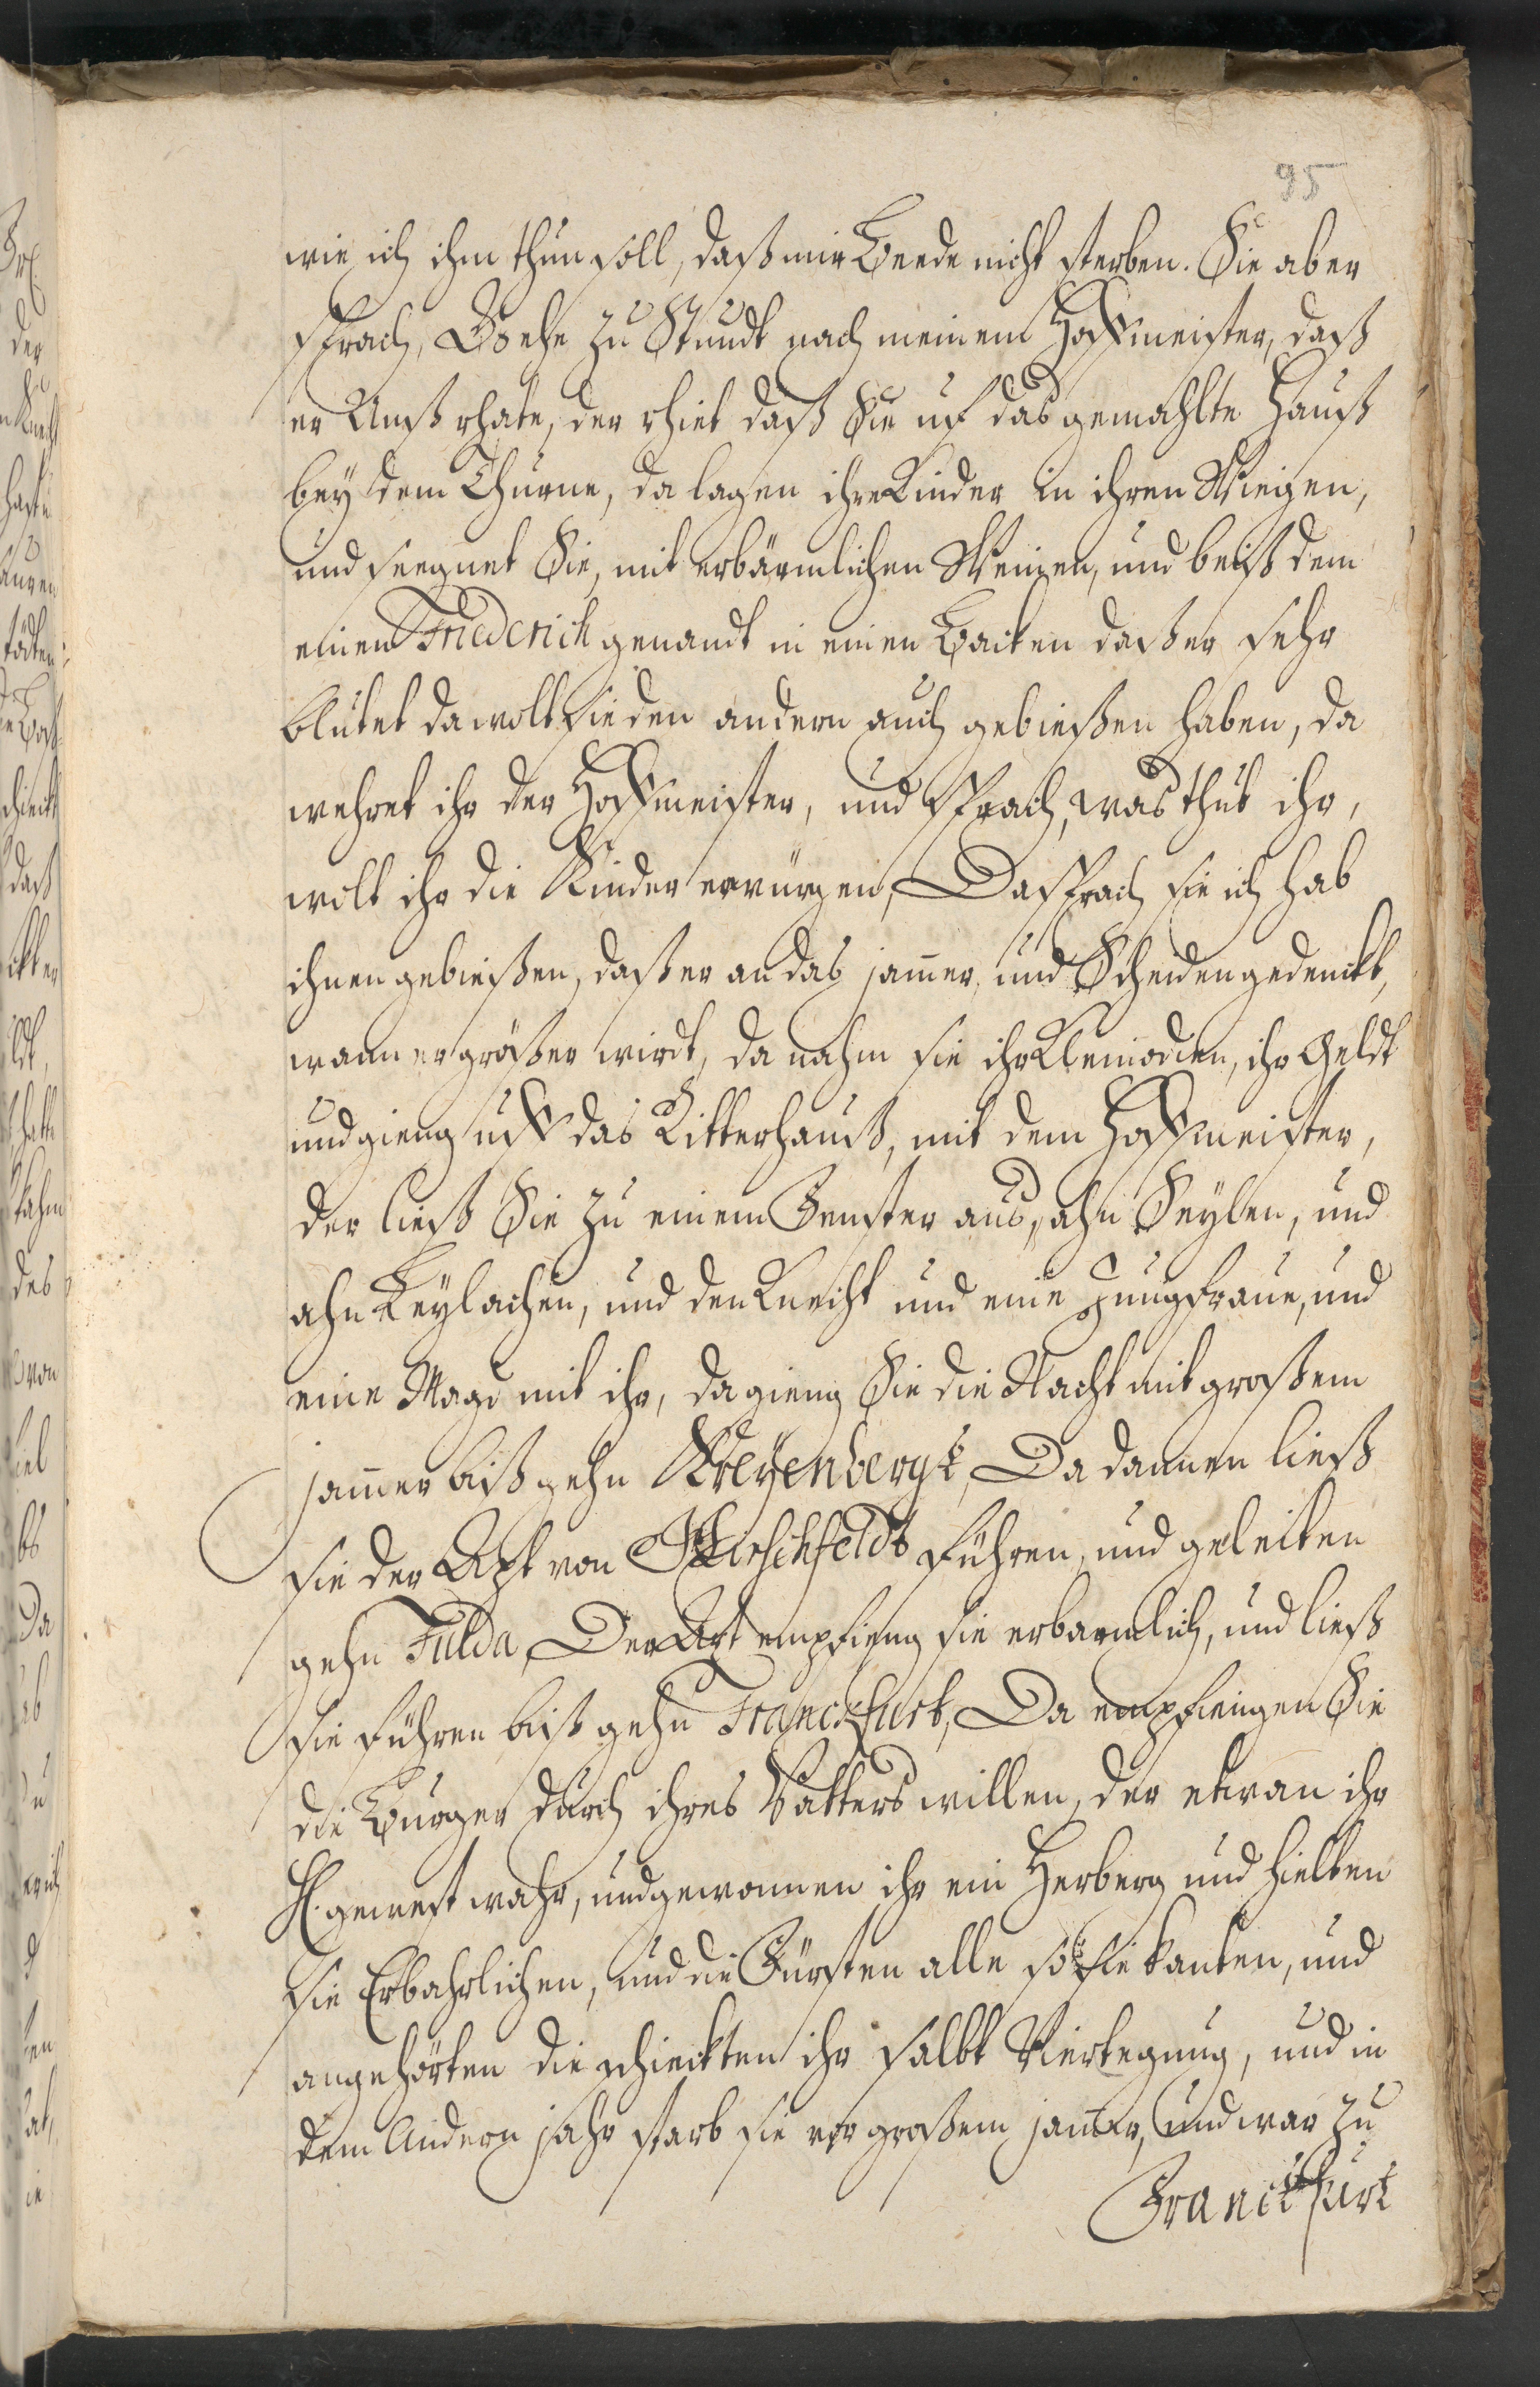 95
wie ich ihm thun soll, daß mir Beede nicht sterben. Sie aber
sprach, Gehe zu Stundt nach meinem Hoffmeister, daß
er Unß rhate, der rhiet daß Sie uf das gemahlte Hauß
bey dem Thurne, da lagen ihre Kinder in ihren Wiegen,
und seegnet Sie, mit erbärmlichen Weinen, und beiß dem
einen Friederich genandt in einen Backen daß er sehr
blutet da wolt sie den andern auch gebießen haben, da
wehret ihr der Hoffmeister, und sprach, was thut ihr,
wolt ihr die Kinder erwürgen, Da sprach sie ich hab
ihnen gebießen, daß er an das jam̄er, und Scheiden gedenckt,
wann er größer wirdt, da nahm sie ihr Kleinodien, ihr Geldt
und gieng uff das Ritterhauß, mit dem Hoffmeister,
der ließ Sie zu einem Fenster aus, ahn Seylen, und
ahn Leylachen, und den Knecht und eine Jungfraue, und
eine Magd mit ihr, da gieng Sie die Nacht mit großem
jam̄er biß gehn Kreyenbergk, Da dannen ließ
sie der Apt von Hirschfeldt führen, und geleiten
gehn Fulda, Der Apt empfieng sie erbarmlich, und ließ
sie führen biß gehn Franckfurt, Da empfiengen Sie
die Burger durch ihres Vatters willen, der etwan ihr
H. gewest wahr, und gewonnen ihr ein Herberg und hielten
sie Erbahrlichen, und die Fürsten alle so sie kanten, und
angehörten die schickten ihr selbt, und in
dem Andern jahr starb sie vor großem jam̄er, und war zu
Franckfurt